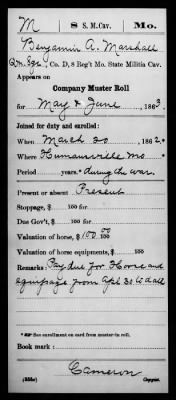 M 8 S. M. Cav. Mo.
Benjamin A. Marshall
Qm. Sgt., Co. D, 8 Reg't Mo. State Militia Cav.
Appears on
Company Muster Roll
for May & June, 1863.
Joined for duty and enrolled:
When March 20, 1862.
Where Humansville Mo
Period years. during the war.
Present or absent Present
Stoppage, $ 100 for
Due Gov't, $ 100 for
Valuation of horse, $ 100 00/100
Valuation of horse equipments, $ 100
Remarks: Pay due for Horse and
equipage from Apl 30 to date
* See enrollment on card from muster-in roll.
Book mark:
Cameron
(358c) Copyist.